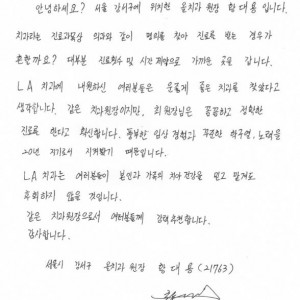 안녕하세요? 서울 강서구에 위치한 윤치과 원장 함대용입니다.
치과라는 진료과목상 외과와 같이 명의를 찾아 진료를 받는 경우가
흔할까요? 대부분 진료횟수 및 시간 제약으로 가까운 곳을 갑니다.
LA 치과에 내원하신 여러분들은 운좋게 좋은 치과를 찾았다고
생각합니다. 같은 치과원장이지만, 최원장님은 꼼꼼하고 정확한
진료를 한다고 확신합니다. 풍부한 임상 경험과 꾸준한 학구열, 노력을
20년 지기로서 지켜봤기 때문입니다.
LA 치과는 여러분들이 본인과 가족의 치아 건강을 믿고 맡겨도
후회하지 않을 것입니다.
같은 치과원장으로서 여러분들께 강력 추천합니다.
감사합니다.
서울시 강서구 윤치과 원장 함대용 (21763)